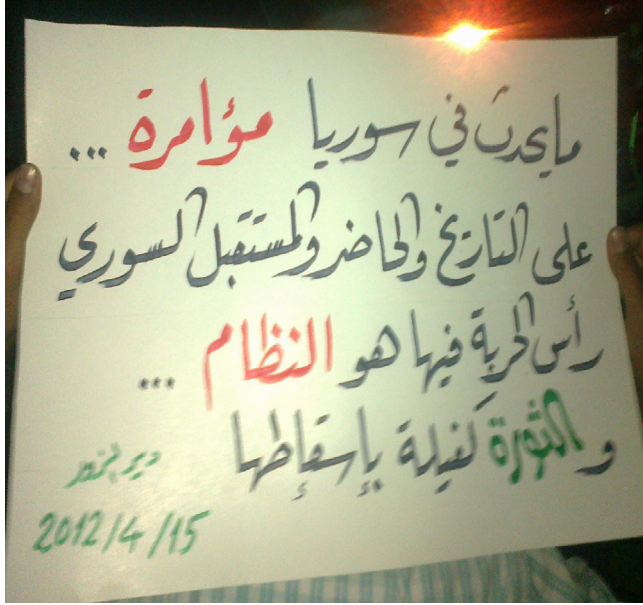 ما يحدث في سوريا مؤامرة ...
على التاريخ والحاضر والمستقبل السوري
رأس الحربة فيها هو النظام ...
و الثورة كفيلة بإسقاطها
ديرالزور
2012/4/15